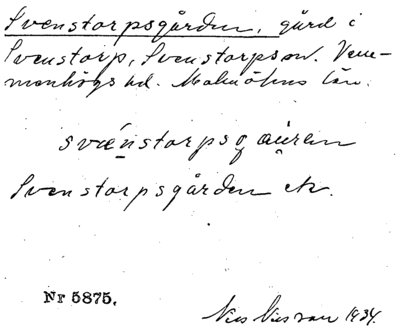 Svenstorpsgården, gård i
Svenstorp, Svenstorps sn. Vem-
menhögs hd. Malmöhus län.
svænstorpsgaúren
Svenstorpsgården ek.
Nr 5875.
1934.